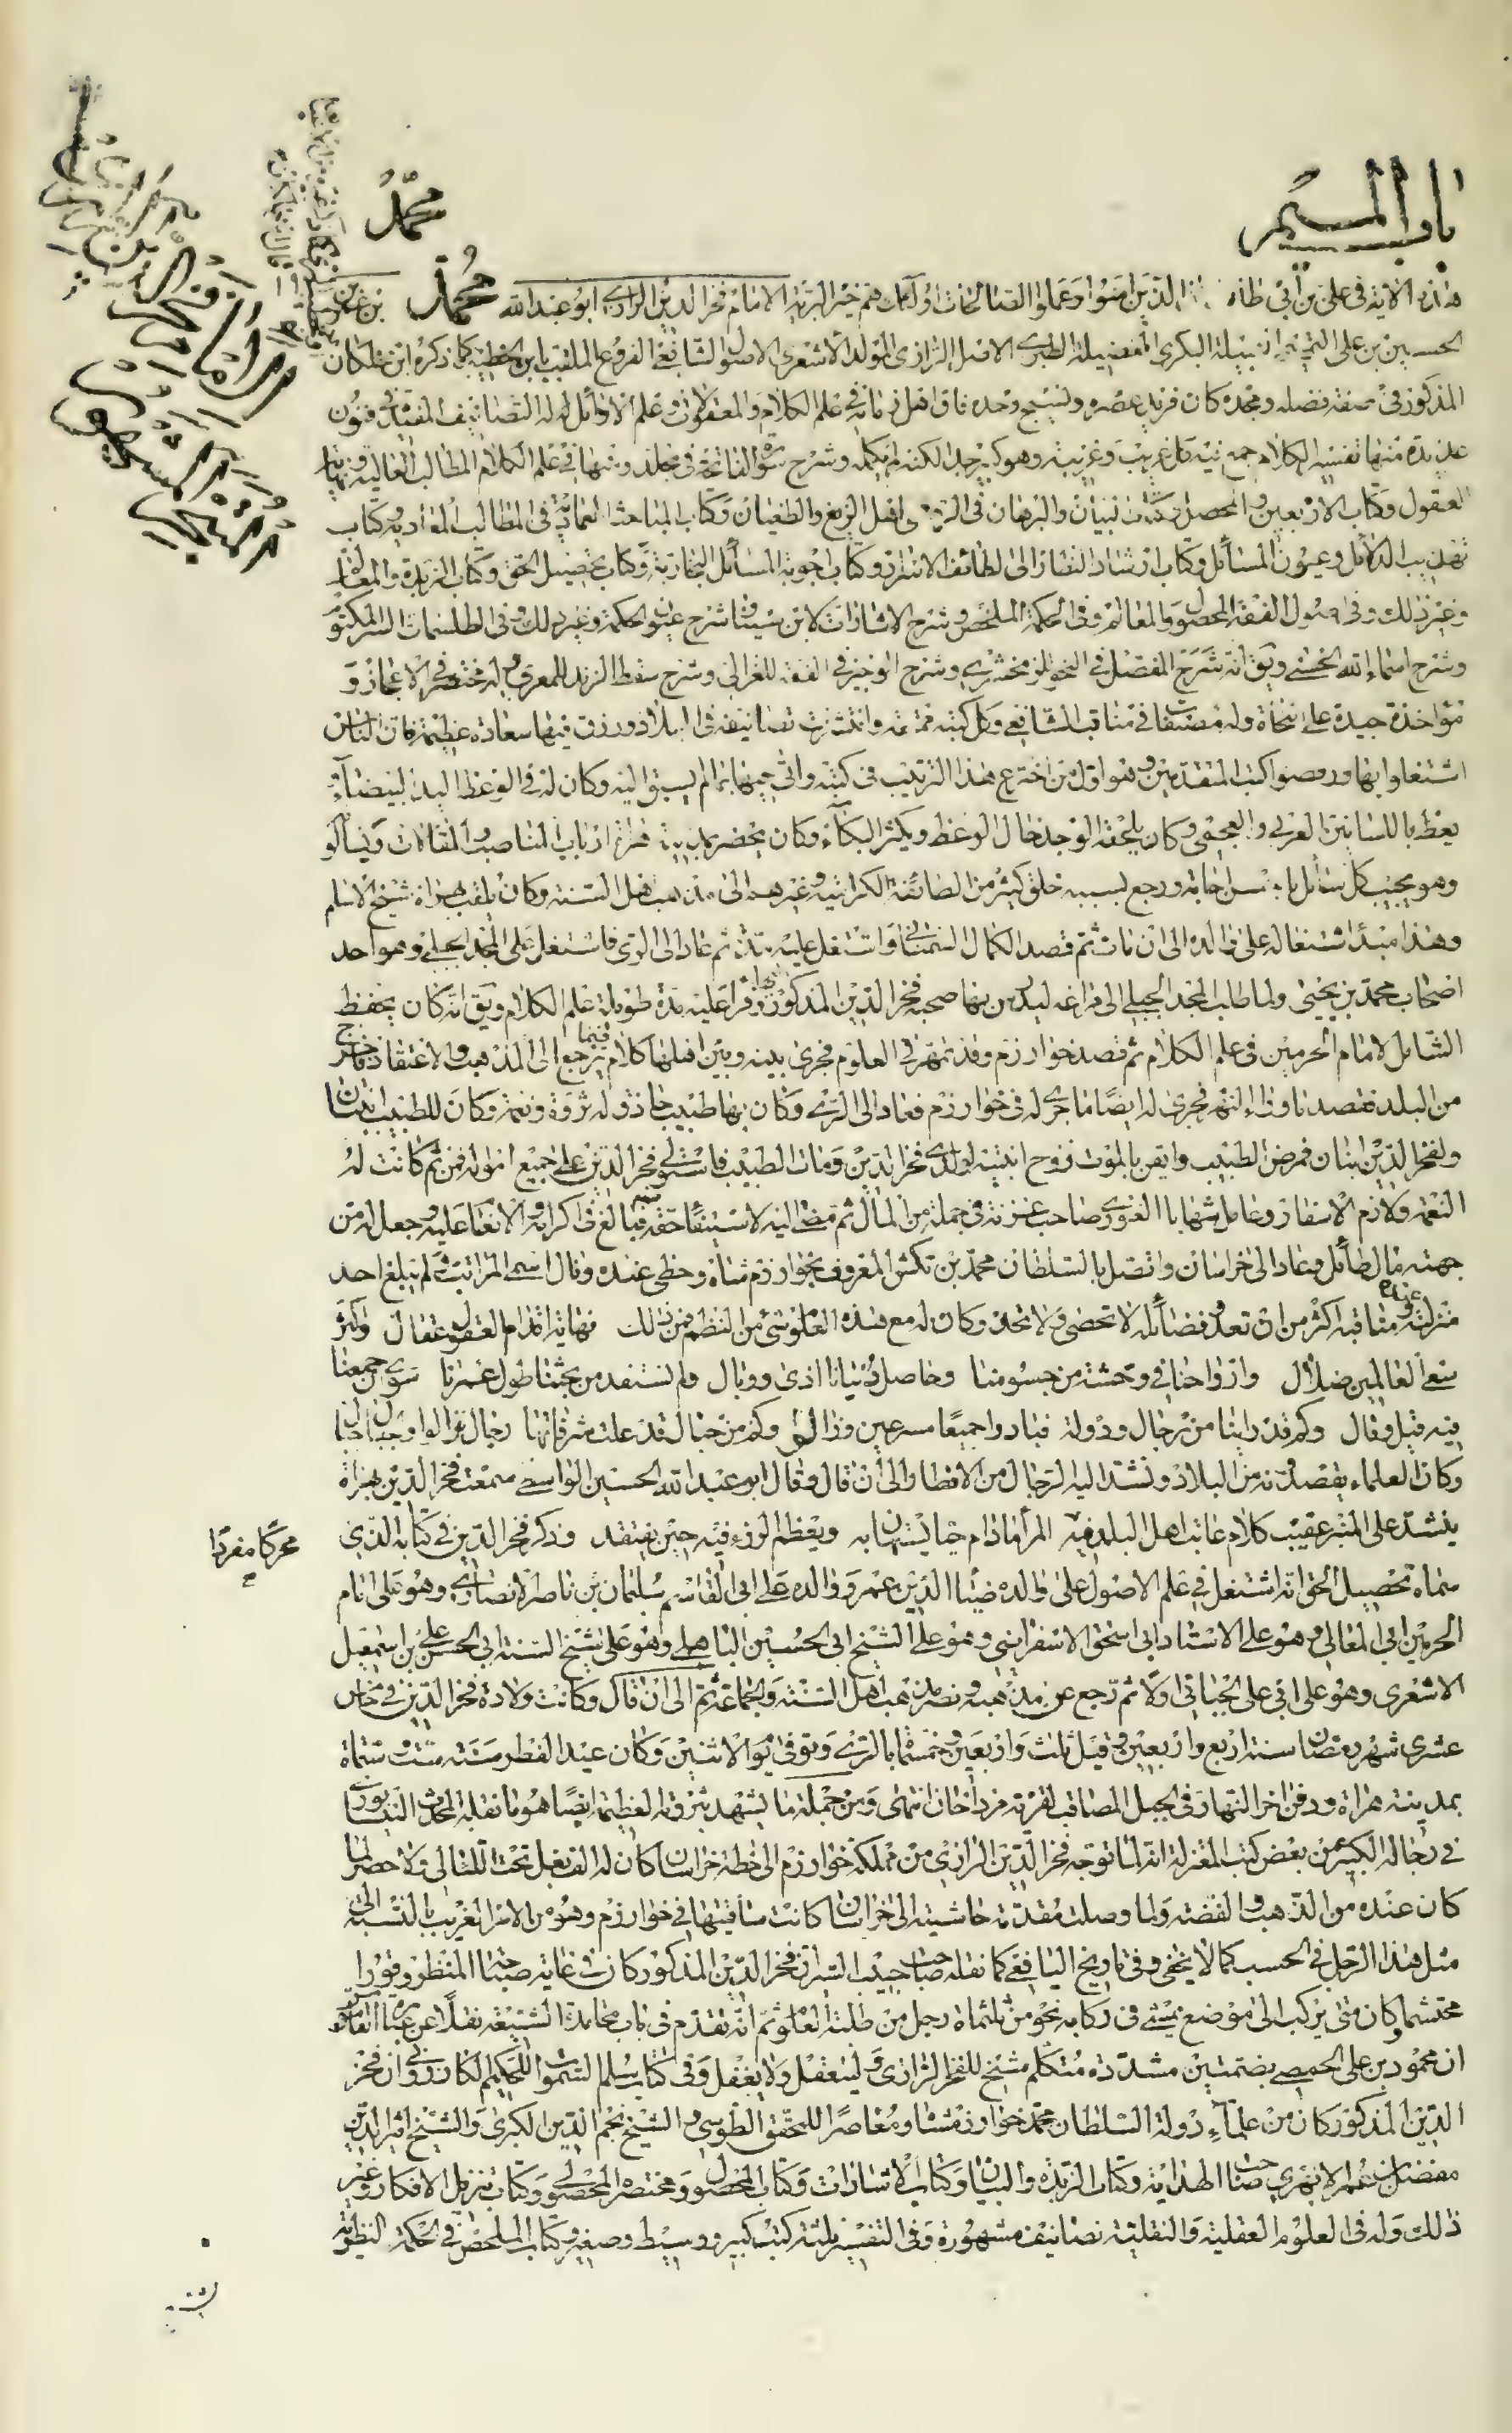 باب الميم
محمد
هذه الآية في علي بن أبي الذين امنوا وعملوا الصالحات اولئك هم خير البرية الامام فخر الدين الرازي ابو عبد الله محمد بن عمر بن
الحسين بن علي البكري الطبري الاصل الرازي المولد الأشعري الاصول الشافعي الفروع الملقب بابن الخطيب كما ذكره ابن خلكان
المذكور في صفة فضله ومجده كان فريد عصره ونسيج وحده فاق اهل زمانه في علم الكلام والمعقولات وعلم الاوائل له التصانيف المفيدة في فنون
عديدة منها تفسير الكلام جمع فيه كل غريب وغريبة وهو كبير جدا لكنه لم يكمله وشرح سورة الفاتحة في مجلد ومنها في علم الكلام المطالب العالية ونهاية
العقول وكتاب الاربعين والمحصل وكتاب البيان والبرهان في الرد على اهل الزيغ والطغيان وكتاب المباحث العمادية في المطالب المعادية وكتاب
تهذيب الدلائل وعيون المسائل وكتاب ارشاد النظار الى لطائف الاسرار وكتاب اجوبة المسائل البخارية وكتاب تحصيل الحق وكتاب الزبدة والمعالم
وغير ذلك وفي اصول الفقه المحصول والمعالم وفي الحكمة الملخص وشرح الاشارات لابن سينا وشرح عيون الحكمة وغير ذلك وفي الطلسمات السر المكتوم
وشرح اسماء الله الحسنى ويق انه شرح المفصل في النحو للزمخشري وشرح الوجيز في الفقه للغزالي وشرح سقط الزند للمعري وله مختصر في الاعجاز و
مؤاخذة جيدة على النحاة وله مصنف في مناقب الشافعي وكل كتبه ممتعة وانتشرت تصانيفه في البلاد ورزق فيها سعادة عظيمة فان الناس
اشتغلوا بها ورفضوا كتب المتقدمين وهو اول من اخترع هذا الترتيب في كتبه واتى فيها بما لم يسبق اليه وكان له في الوعظ اليد البيضاء
يعظ باللسانين العربي والعجمي وكان يلحقه الوجد حال الوعظ ويكثر البكاء وكان يحضر بمدينة هراة ارباب المناصب والمقالات ويسألو
وهو يجيب كل سائل باحسن اجابة ورجع بسببه خلق كثير من الطائفة الكرامية وغيرهم الى مذهب اهل السنة وكان يلقب بهراة شيخ الاسلام
وهذا مبدأ اشتغاله على والده الى ان مات ثم قصد الكمال السمناني واشتغل عليه مدة ثم عاد الى الري فاشتغل على المجد الجيلي وهو احد
اصحاب محمد بن يحيى ولما طلب المجد الجيلي الى مراغه ليدرس بها صحبه فخر الدين المذكور وقرأ عليه مدة طويلة علم الكلام ويق انه كان يحفظ
الشامل لامام الحرمين في علم الكلام ثم قصد خوارزم وقد تمهر في العلوم فجرى بينه وبين اهلها كلام فيما يرجع الى المذهب والاعتقاد فاخرج
من البلد فقصد ماوراء النهر فجرى له ايضا ما جرى له في خوارزم فعاد الى الري وكان بها طبيب حاذق له ثروة ونعمة وكان للطبيب ابنتان
ولفخر الدين ابنان فمرض الطبيب وايقن بالموت فزوج ابنتيه لولدي فخر الدين ومات الطبيب فاستولى فخر الدين على جميع امواله فمن ثم كانت له
النعمة ولازم الاسفار وعامل شهاب الغوري صاحب غزنة في جملة من المال ثم مضى اليه لاستيفاء حقه فبالغ في اكرامه والانعام عليه وحصل له من
جهته مال طائل وعاد الى خراسان واتصل بالسلطان محمد بن تكش المعروف بخوارزم شاه وحظي عنده ونال اسمى المراتب ولم يبلغ احد
منزلته عنده ومناقبه اكثر من ان تعد وفضائله لا تحصى ولا تحد وكان له مع هذه العلوم شيء من النظم فمن ذلك نهاية اقدام العقول عقال واكثر
سعي العالمين ضلال وارواحنا في وحشة من جسومنا وحاصل دنيانا اذى ووبال ولم نستفد من بحثنا طول عمرنا سوى ان جمعنا
فيه قيل وقال وكم قد راينا من رجال ودولة فبادوا جميعا مسرعين وزالوا وكم من جبال قد علت شرفاتها رجال فزالوا والجبال جبال
وكان العلماء يقصدونه من البلاد وتشد اليه الرحال من الاقطار الى ان قال وقال ابو عبد الله الحسين الواسطي سمعت فخر الدين بهراة
ينشد على المنبر عقيب كلام عاتب اهل البلد فيه المرأ مادام حيا يستهان به ويعظم الرزء فيه حين يفتقد وذكر فخر الدين في كتابه الذي
محركا مفردا
سماه تحصيل الحق انه اشتغل في علم الاصول على والده ضياء الدين عمر ووالده على ابي القاسم سليمان بن ناصر الانصاري وهو على امام
الحرمين ابي المعالي وهو على الاستاد ابي اسحق الاسفرايني وهو على الشيخ ابي الحسين الباهلي وهو على شيخ السنة ابي الحسن علي بن اسمعيل
الاشعري وهو على ابي علي الجبائي اولا ثم رجع عن مذهبه ونصر مذهب اهل السنة والجماعة الى ان قال وكانت ولادة فخر الدين في خامس
عشري شهر رمضان سنة اربع واربعين وقيل ثلث واربعين وخمسمائة بالري وتوفي يوم الاثنين وكان عيد الفطر سنة ست ستمائة
بمدينة هراة ودفن اخر النهار في الجبل المصاقب لقرية مزداخان انتهى ومن جملة ما يشهد بثروته العظيمة ايضا هو ما نقله المحدث النيسابوري
في رجاله الكبير عن بعض كتب المعتزلة انه لما توجه فخر الدين الرازي من مملكة خوارزم الى خطة خراسان كان له الف بغل تحت الثقالي ولا حصر لما
كان عنده من الذهب والفضة ولما وصلت مقدمة حاشيته الى خراسان كانت ساقيتها في خوارزم وهو من الامر الغريب بالنسبة الى
مثل هذا الرجل في الحسب كما لا يخفى وفي تاريخ اليافعي كما نقله صاحب حبيب السير ان فخر الدين المذكور كان في غاية صباحة المنظر وقورا
محتشما وكان متى يركب الى موضع يمشي في ركابه نحو من ثلثماة رجل من طلبة العلوم ثم انه تقدم في باب محامدة الشيعة نقلا عن
ان محمود بن علي الحمصي بضمتين مشددة متكلم شيخ للفخر الرازي وفي كتاب سلم السموات للحكيم الكازروني ان فخر
الدين المذكور كان من علماء دولة السلطان محمد خوارزمشاه ومعاصرا للمحقق الطوسي والشيخ نجم الدين الكبرى والشيخ اثير الدين
مفضل بن عمر الابهري صاحب الهداية وكتاب الزبدة والبيان وكتاب الاشارات وكتاب المحصول ومختصر المحصول وكتاب تنزيل الافكار وغير
ذلك وله في العلوم العقلية والنقلية تصانيف مشهورة وفي التفسير ثلثة كتب كبير ووسيط وصغير وكتاب الملخص في الحكمة النظرية